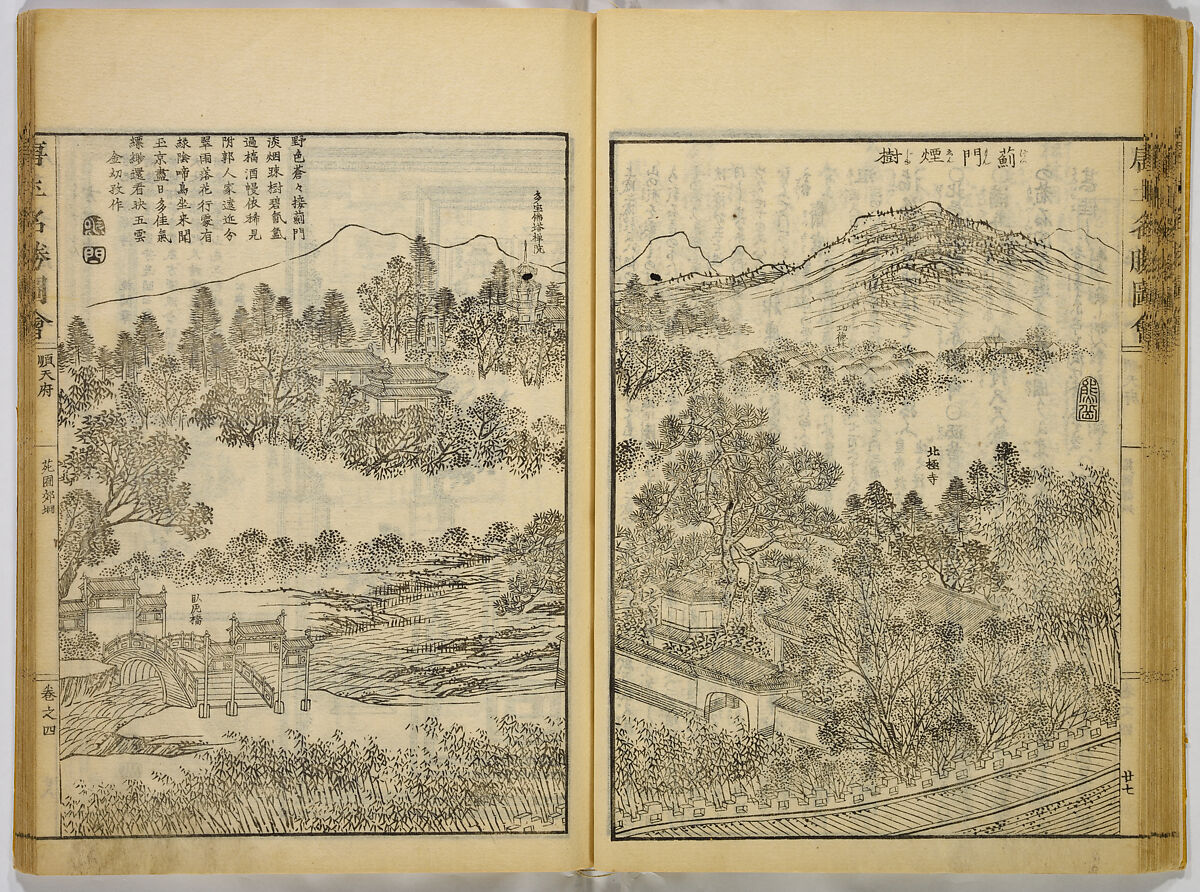 唐土名勝圖會
廿七
薊門煙樹
北極寺
多宝佛塔禅院
野色蒼々接薊門
淡烟疎樹碧氤氲
過橋酒幔依稀見
附郭人家遠近分
翠雨落花行處有
緑陰啼鳥坐來聞
玉京盡日多佳氣
縹緲還看映五雲
金幼孜作
唐土名勝圖會
順天府
苑囿郊坰
卷之四